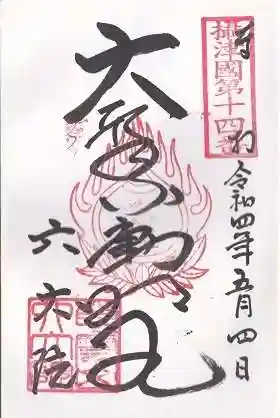 攝津國第十四番
奉拝
令和四年五月四日
大聖不動明王
六大院